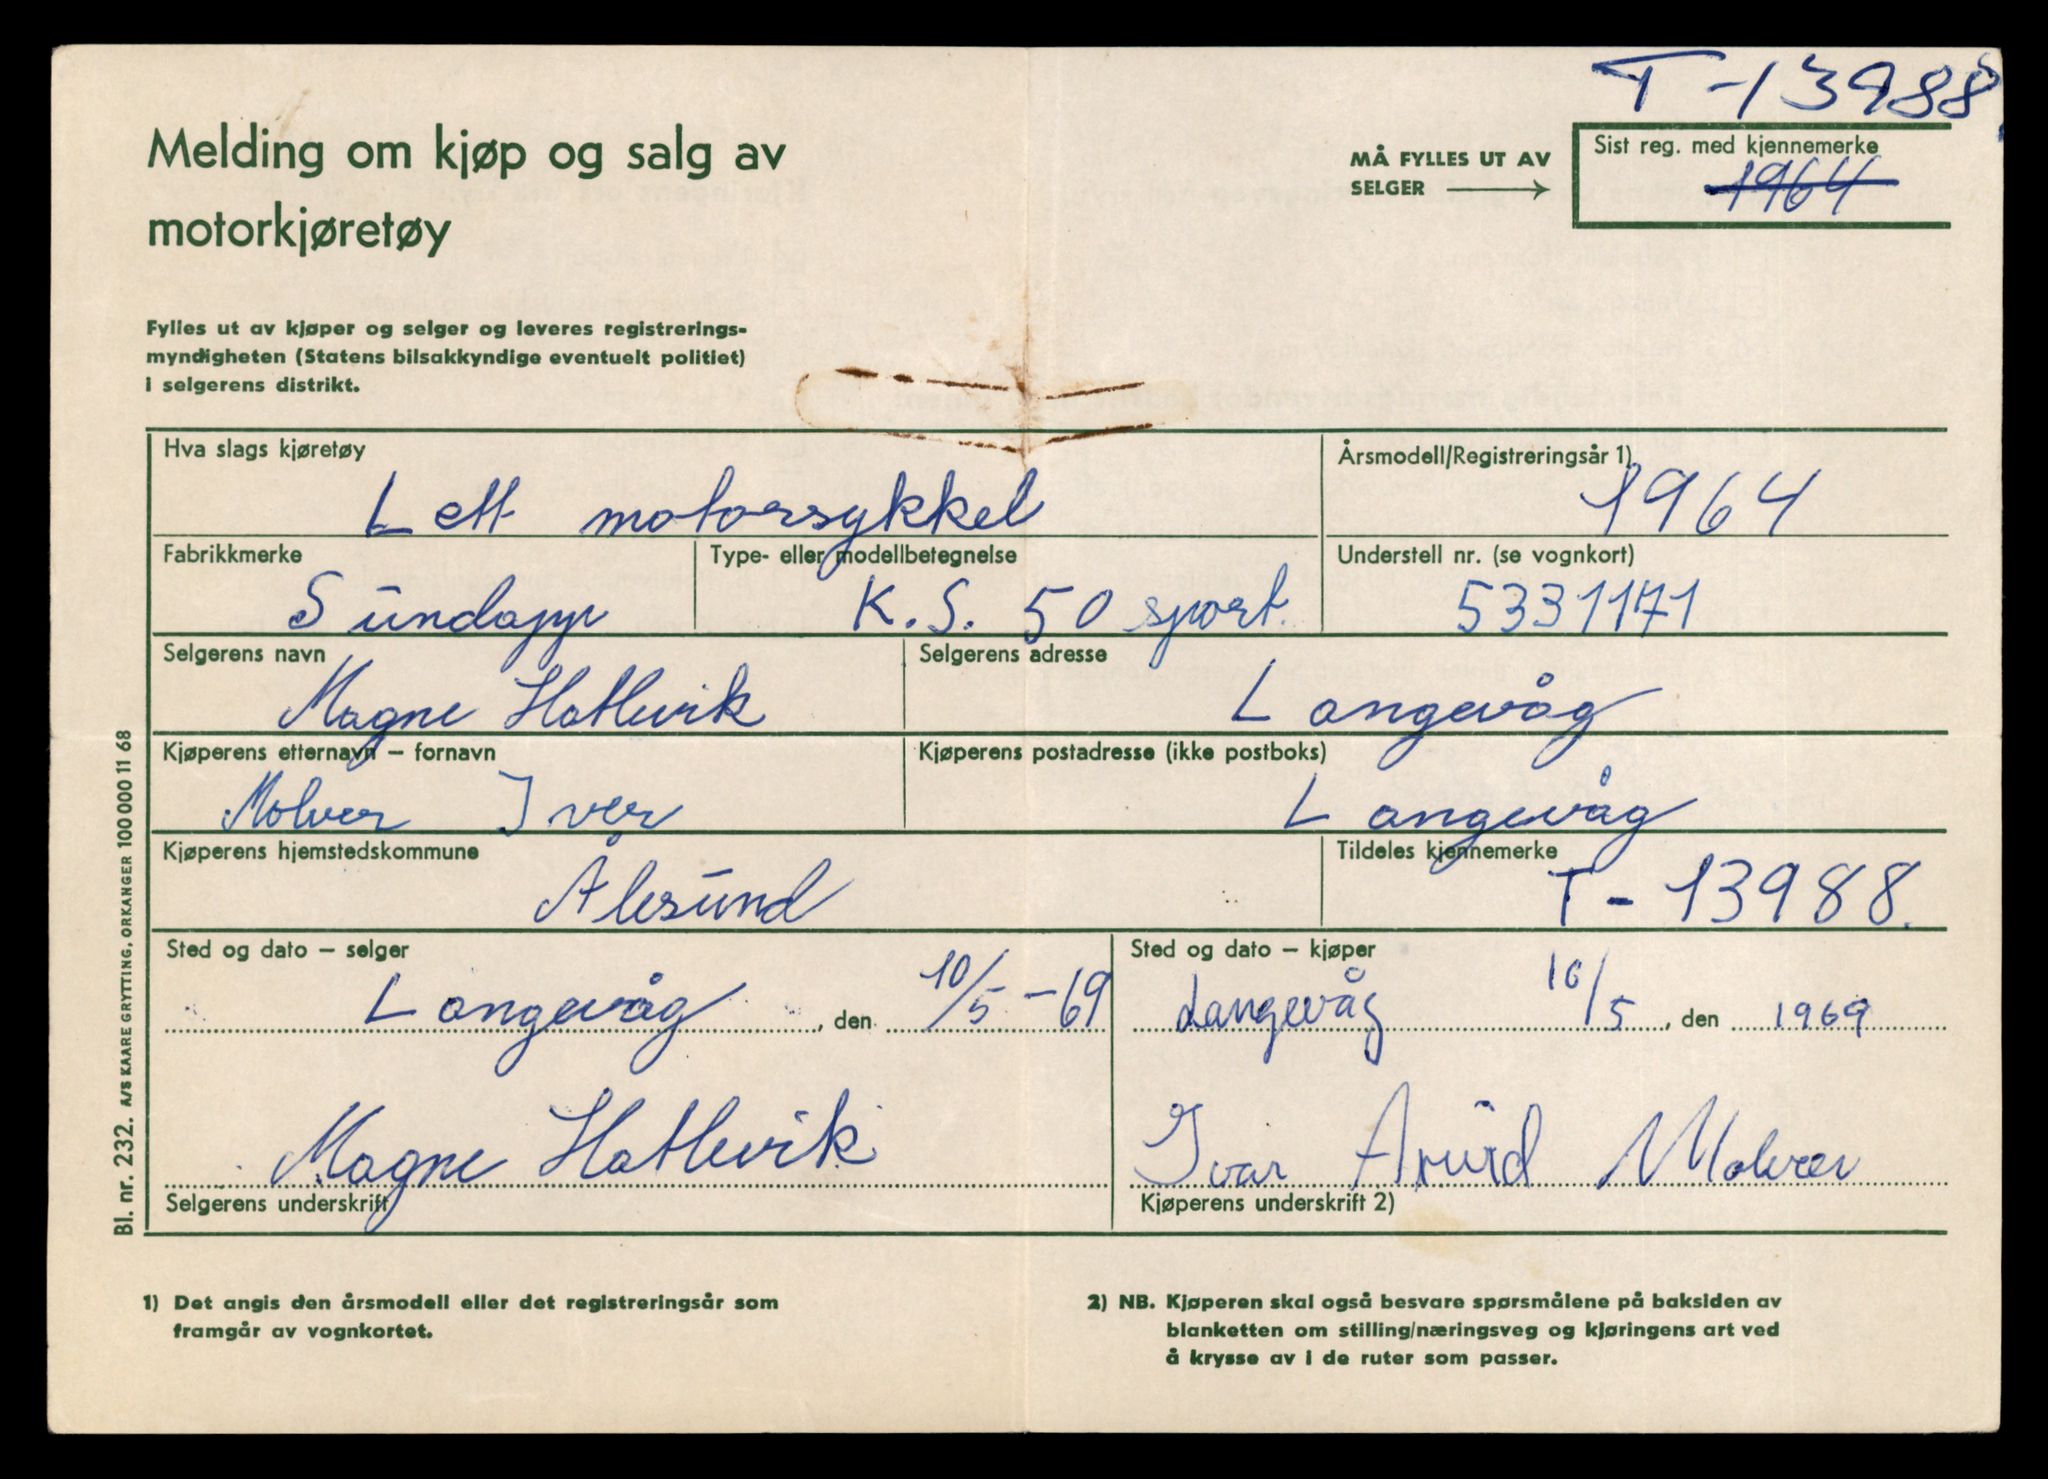 T-13988
Melding om kjøp og salg av
motorkjøretøy
MÅ FYLLES UT AV
SELGER
Sist reg. med kjennemerke
1964
Fylles ut av kjøper og selger og leveres registrerings-
myndigheten (Statens bilsakkyndige eventuelt politiet)
i selgerens distrikt.
Hva slags kjøretøy
Lett motorsykkel
Årsmodell/Registreringsår 1)
1964
Fabrikkmerke
Sundapp
Type- eller modellbetegnelse
K.S. 50 sport.
Understell nr. (se vognkort)
5331171
Selgerens navn
Magne Hatlevik
Selgerens adresse
Langevåg
Kjøperens etternavn – fornavn
Molver Iver
Kjøperens postadresse (ikke postboks)
Langevåg
Kjøperens hjemstedskommune
Ålesund
Tildeles kjennemerke
T-13988.
Sted og dato – selger
Langevåg, den 10/5-69
Sted og dato – kjøper
Langevåg 10/5, den 1969
Magne Hatlevik
Selgerens underskrift
Ivar Arvid Molver
Kjøperens underskrift 2)
Bl. nr. 232. A/S KAARE GRYTTING, ORKANGER 100 000 11 68
1) Det angis den årsmodell eller det registreringsår som
framgår av vognkortet.
2) NB. Kjøperen skal også besvare spørsmålene på baksiden av
blanketten om stilling/næringsveg og kjøringens art ved
å krysse av i de ruter som passer.